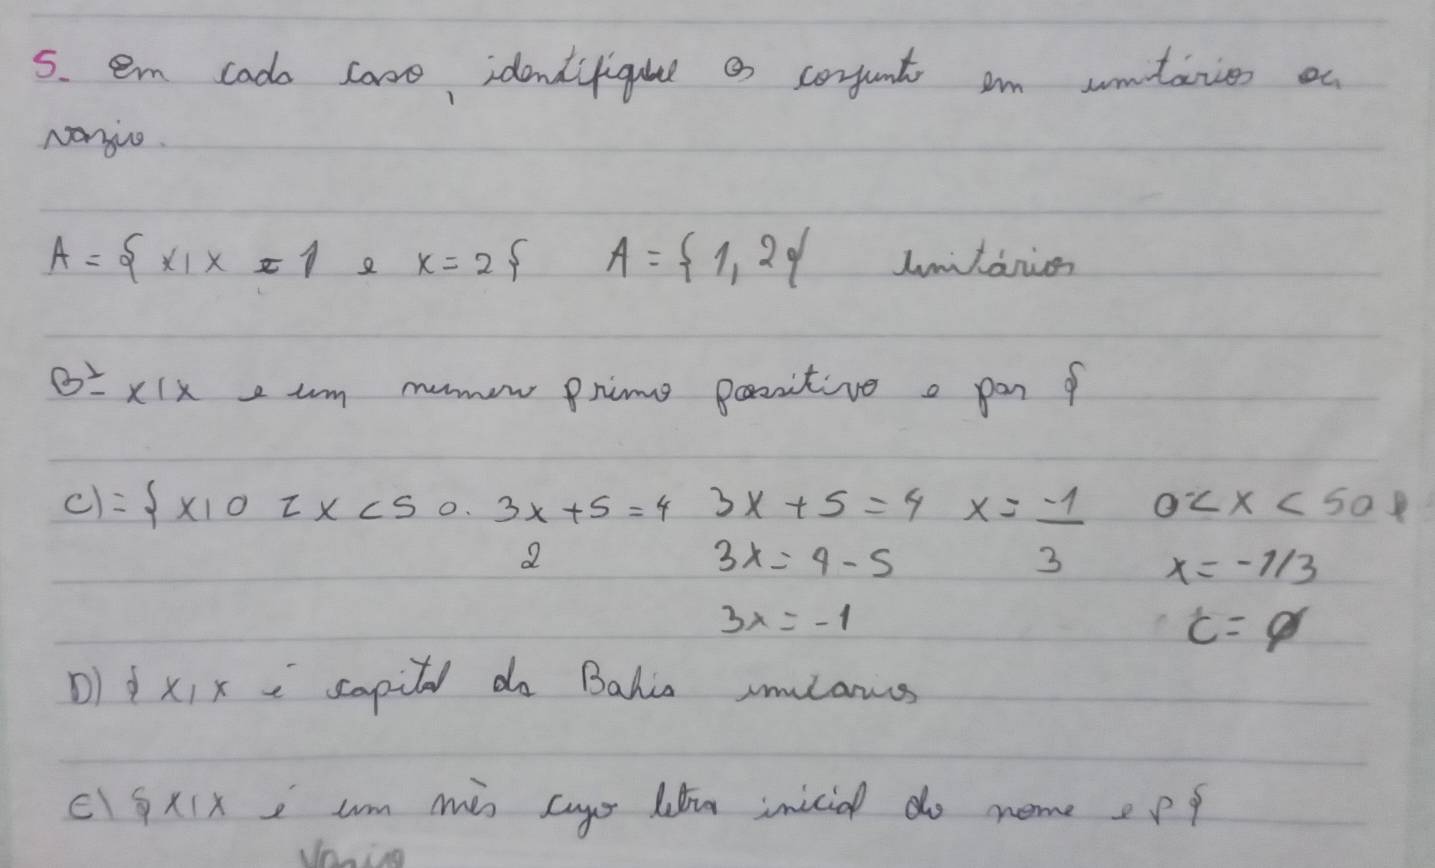 5. em cada caso, identifique os conjunto em unitários ou
vazio.
A = { x | x = 1 e x = 2 } A = { 1, 2 } unitários
B = x | x e um numero primo possitivo e par }
C) = { x | 0 < x < 5 0. 3x + 5 = 4 3x + 5 = 4 x = -1 0 < x < 50 e
2 3x = 4 - 5 3 x = -1/3
3x = -1 C = ∅
D) { x | x é capital da Bahia unitarios
E) { x | x é um mês cujo letra inicial do nome e p }
Vazio